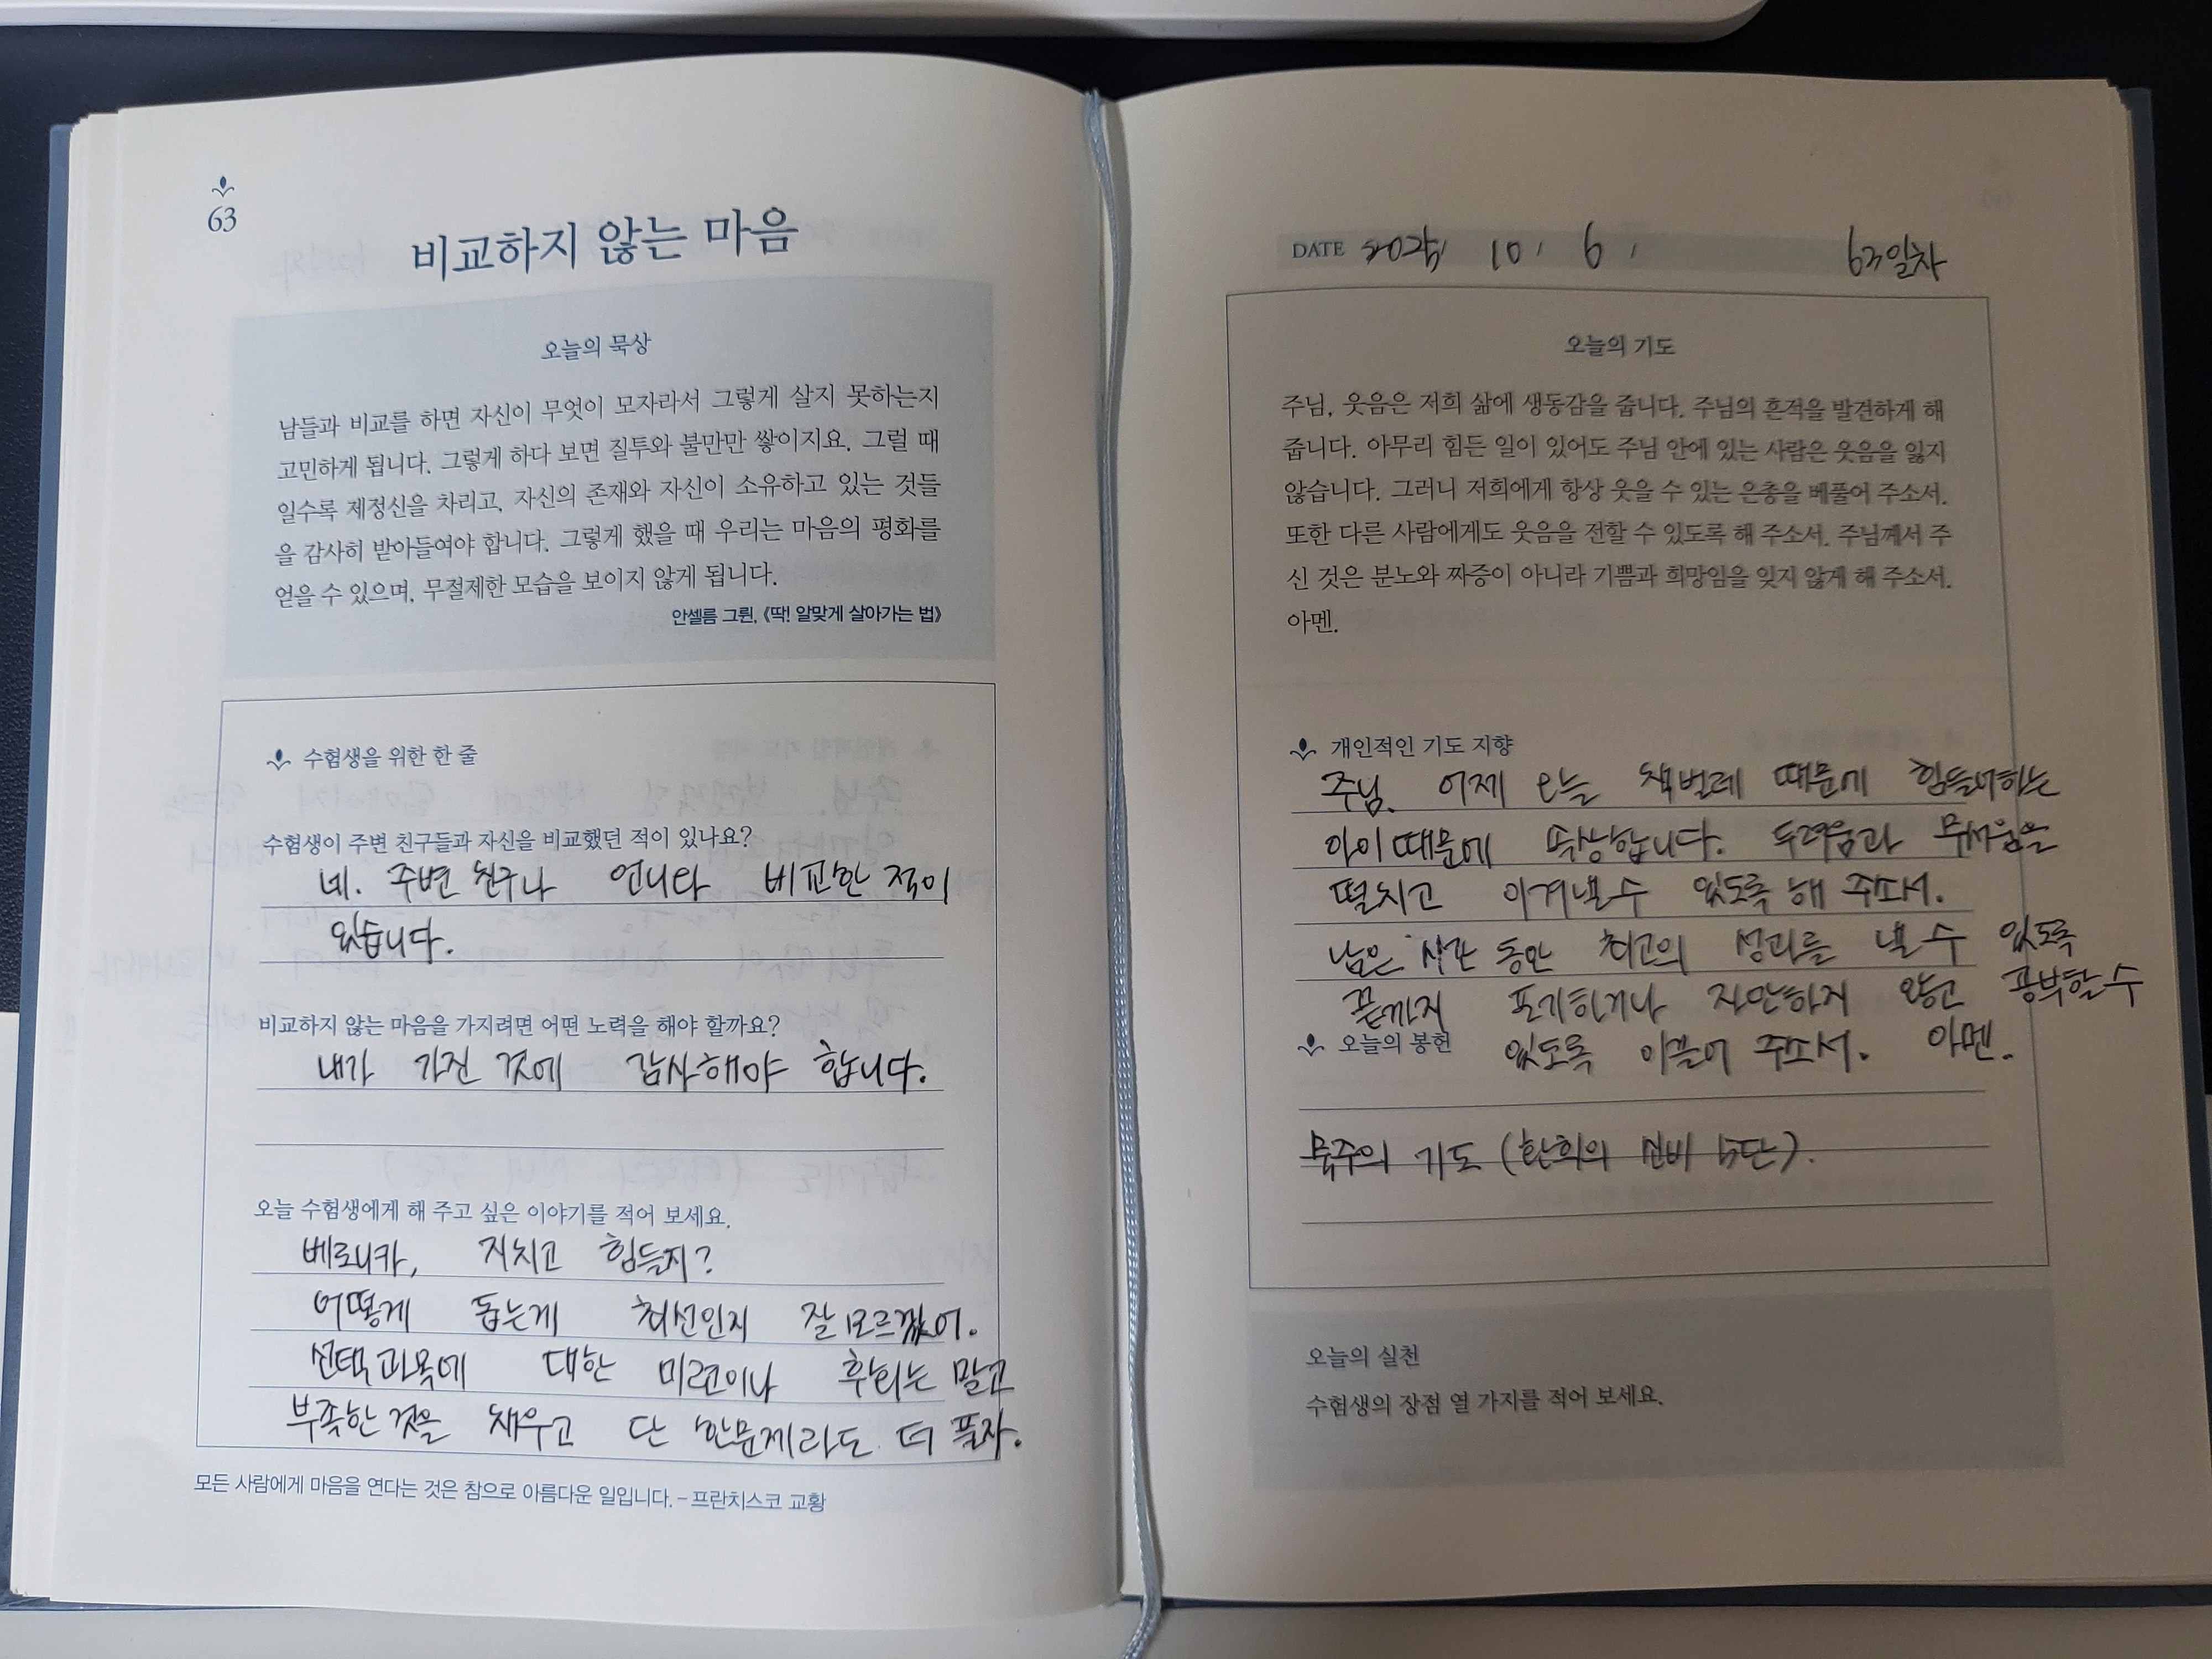 63
비교하지 않는 마음
오늘의 묵상
남들과 비교를 하면 자신이 무엇이 모자라서 그렇게 살지 못하는지
고민하게 됩니다. 그렇게 하다 보면 질투와 불만만 쌓이지요. 그럴 때
일수록 제정신을 차리고, 자신의 존재와 자신이 소유하고 있는 것들
을 감사히 받아들여야 합니다. 그렇게 했을 때 우리는 마음의 평화를
얻을 수 있으며, 무절제한 모습을 보이지 않게 됩니다.
안셀름 그륀, 《딱! 알맞게 살아가는 법》
수험생을 위한 한 줄
수험생이 주변 친구들과 자신을 비교했던 적이 있나요?
네. 주변 친구나 언니랑 비교한 적이
있습니다.
비교하지 않는 마음을 가지려면 어떤 노력을 해야 할까요?
내가 가진 것에 감사해야 합니다.
오늘 수험생에게 해 주고 싶은 이야기를 적어 보세요.
베로니카, 지치고 힘들지?
어떻게 돕는게 최선인지 잘 모르겠어.
선택과목에 대한 미련이나 후회는 말고
부족한 것을 채우고 단 한문제라도 더 풀자.
모든 사람에게 마음을 연다는 것은 참으로 아름다운 일입니다. – 프란치스코 교황
DATE 10. 6. 63일차
오늘의 기도
주님, 웃음은 저희 삶에 생동감을 줍니다. 주님의 흔적을 발견하게 해
줍니다. 아무리 힘든 일이 있어도 주님 안에 있는 사람은 웃음을 잃지
않습니다. 그러니 저희에게 항상 웃을 수 있는 은총을 베풀어 주소서.
또한 다른 사람에게도 웃음을 전할 수 있도록 해 주소서. 주님께서 주
신 것은 분노와 짜증이 아니라 기쁨과 희망임을 잊지 않게 해 주소서.
아멘.
개인적인 기도 지향
주님. 어제 오늘 책벌레 때문에 힘들어하는
아이 때문에 속상합니다. 두려움과 무서움을
떨치고 이겨낼 수 있도록 해 주소서.
남은 시간 동안 최고의 성과를 낼 수 있도록
끝까지 포기하거나 자만하지 않고 공부할 수
오늘의 봉헌 있도록 이끌어 주소서. 아멘.
묵주의 기도 (환희의 신비 5단).
오늘의 실천
수험생의 장점 열 가지를 적어 보세요.